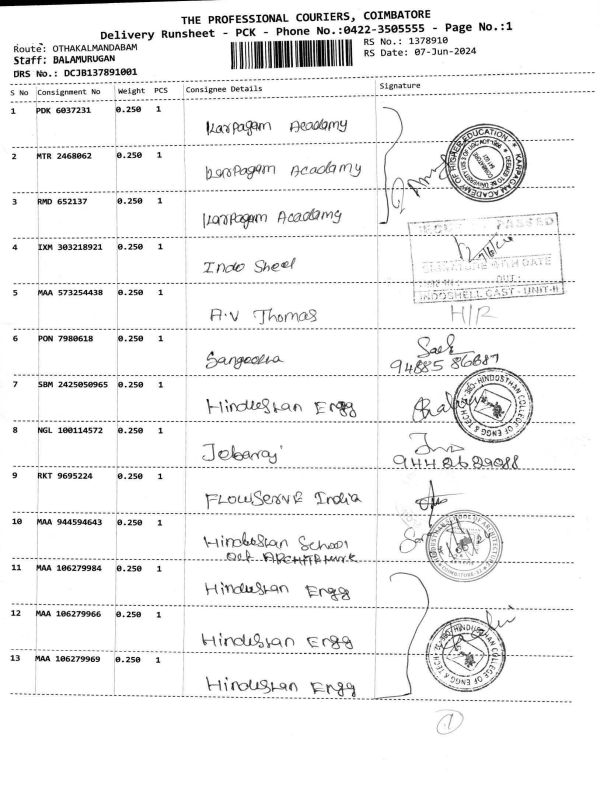 THE PROFESSIONAL COURIERS, COIMBATORE
Delivery Runsheet - PCK - Phone No.:0422-3505555 - Page No.:1
Route: OTHAKALMANDABAM RS No.: 1378910
Staff: BALAMURUGAN RS Date: 07-Jun-2024
DRS No.: DCJB137891001
S No Consignment No Weight PCS Consignee Details Signature
1 PDK 6037231 0.250 1 Karpagam Academy
2 MTR 2468062 0.250 1 Karpagam Academy
3 RMD 652137 0.250 1 Karpagam Academy
KARPAGAM ACADEMY OF HIGHER EDUCATION
PASSED
4 IXM 303218921 0.250 1 Indo Shell
SIGNATURE WITH DATE
OUT:
INDOSHELL CAST - UNIT-II
5 MAA 573254438 0.250 1 A.V Thomas H/R
6 PON 7980618 0.250 1 Sangeetha
94885 86687
7 SBM 2425050965 0.250 1 Hindustan Engg
HINDUSTHAN COLLEGE OF ENGG & TECH
8 NGL 100114572 0.250 1 Jebaraj
9442629088
9 RKT 9695224 0.250 1 FLOWSERVE India
10 MAA 944594643 0.250 1 Hindustan School
OOF ARCHITATURE
11 MAA 106279984 0.250 1 Hindustan Engg
12 MAA 106279966 0.250 1 Hindustan Engg
HINDUSTHAN COLLEGE OF ENGG & TECH
13 MAA 106279969 0.250 1 Hindustan Engg
1